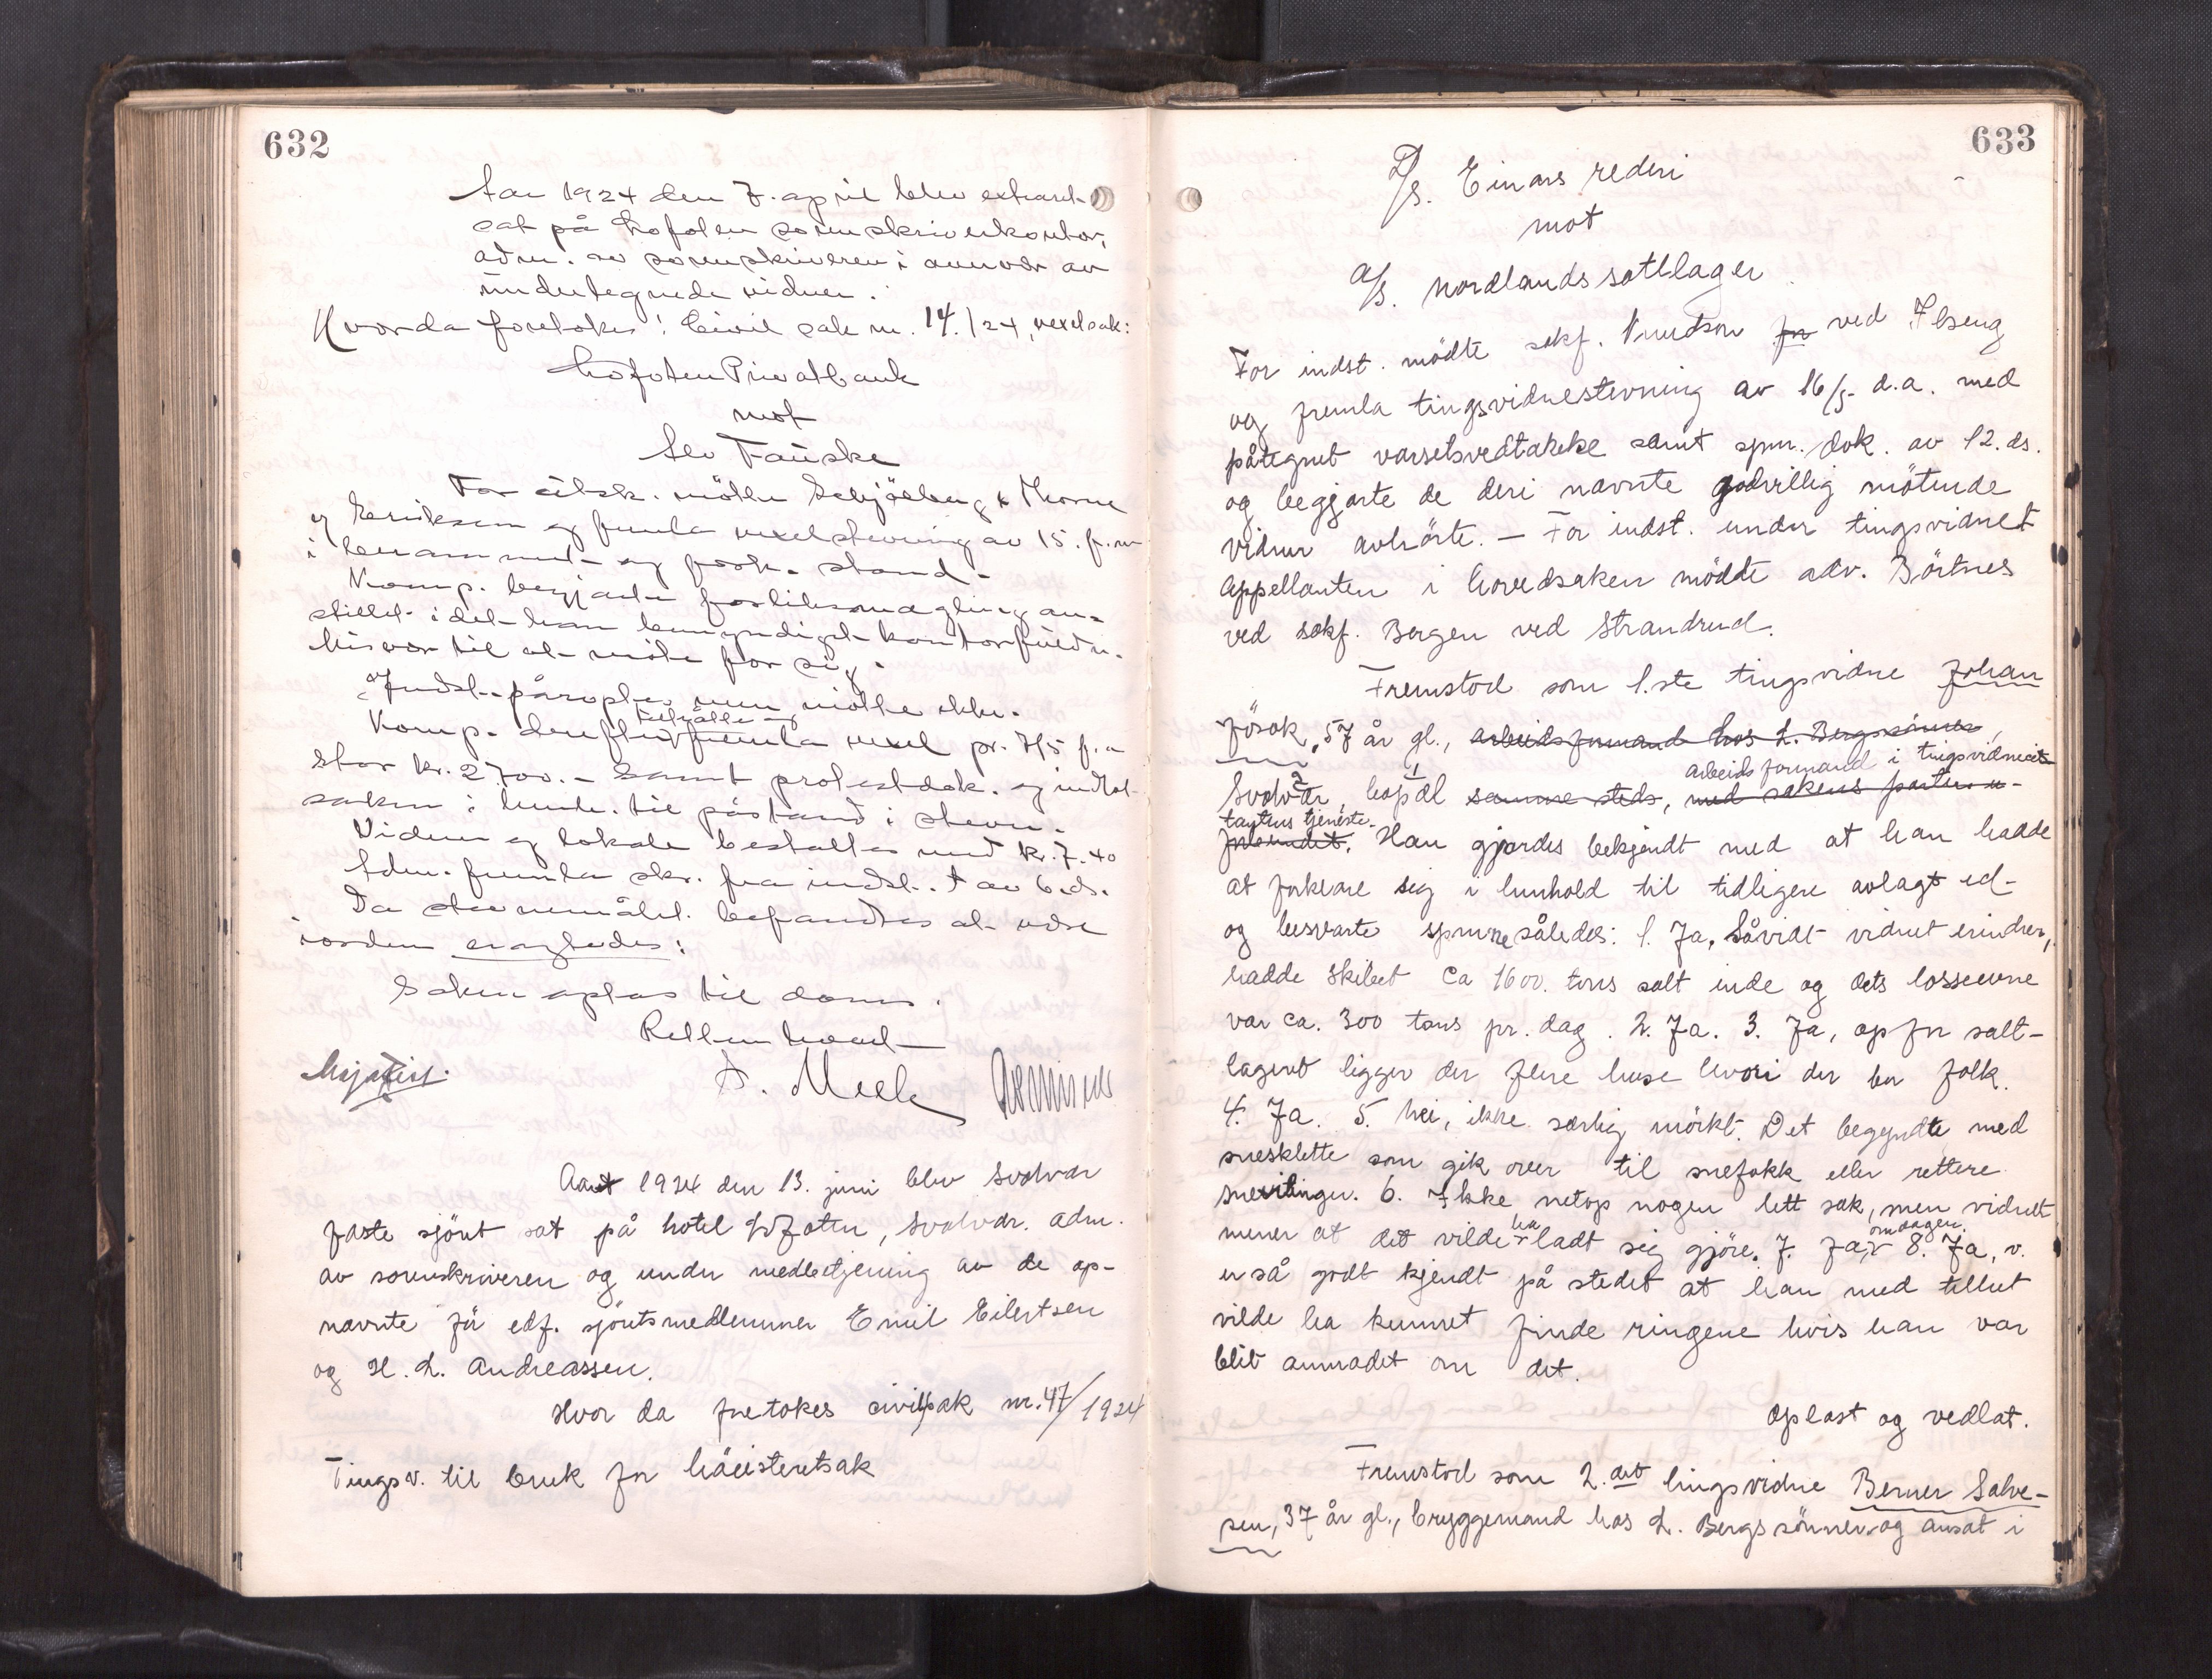 632
Aar 1924 den 7. april blev extraret
sat på Lofoten sorenskriverkontor,
adm. av sorenskriveren i nærvær av
undertegnede vidner.
Hvorda foretokes: Civil sak nr. 14./24, vexelsak:
Lofoten Privatbank
mot
Alv Fauske
For citsk. mötte Schjölberg & Thorne
og Henriksen og fremla vexelstevning av 15. f.m
i berammet og fork. stand.
Komp. begjærte forliksmægling an-
stillet idet han bemyndiget kontorfuldm.
til at möte for sig.
Indst. påroptes men mötte ikke.
Komp. derefter fremla vexel pr. 7/5 f.a
stor kr. 2700.- samt protestdok. og indlot
saken i henh. til påstand i stevn.
Vidner og lokale bestaltes med kr. 7.40
Adm. fremla skr. fra indst. av 6.ds.
Da stevnemålet befandtes at være
iorden eragtedes:
Saken optas til doms.
Retten hævet
A. Meek
Aar 1924 den 13. juni blev Svolvær
faste sjöret sat på hotel Lofoten, Svolvær. adm.
av sorenskriveren og under medbetjening av de op-
nævnte för edf. sjöretsmedlemmer Emil Eilertsen
og H. L. Andreassen.
Hvor da foretokes civilsak nr. 47/1924
Tingsv. til bruk for höiesteretsak
633
D/S. Einars rederi
mot
A/S. Nordlands saltlager
For indst. mödte sakf. Knudson for ved Ilseng
og fremla tingsvidnestevning av 16/5- d.a. med
påtegnet varselsvedtakelse samt spm. dok. av 12. ds.
og begjærte de deri nævnte godvillig mötende
vidner avhörte. - For indst. under tingsvidnet
appellanten i hovedsaken mödte adv. Börtnes
ved sakf. Bergen ved Strandrud.
Fremstod som 1.ste tingsvidne Johan
Jösok, 57 år gl., arbeidsformand hos L. Bergsönner,
arbeidsformand i tingsvidnets
Svolvær, bopæl samme steds, med sakens parter u-
tantens tjeneste.
forbundet. Han gjordes bekjendt med at han hadde
at forklare sig i henhold til tidligere avlagt ed-
og besvarte spmne således: 1. Ja, Såvidt vidnet erindrer,
hadde skibet ca 1600. tons salt inde og dets losseevne
var ca. 300 tons pr. dag. 2. Ja. 3. Ja, op for salt-
lageret ligger der flere huse hvori der bor folk.
4. Ja. 5. Nei, ikke særlig mörkt. Det begyndte med
snesklette som gik over til snefokk eller rettere
snevitinger. 6. Ikke netop nogen lett sak, men vidnet
mener at det vilde ha ladt sig gjöre. 7. Ja, om dagen. 8. Ja, v.
er så godt kjendt på stedet at han med letthet
vilde ha kunnet finde ringene hvis han var
blit anmodet om det.
Oplæst og vedtat.
Fremstod som 2.det tingsvidne Berner Salve-
sen, 37 år gl., bryggemand hos L. Bergs sönner og ansat i